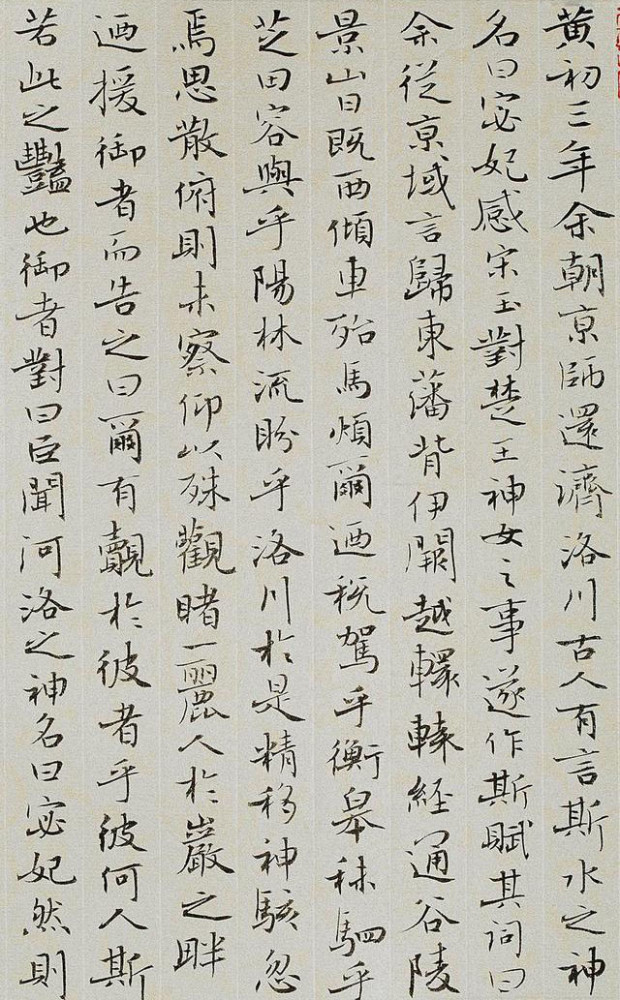 黃初三年余朝京師還濟洛川古人有言斯水之神
名曰宓妃感宋玉對楚王神女之事遂作斯賦其詞曰
余從京域言歸東藩背伊闕越轘轅經通谷陵
景山日既西傾車殆馬煩爾迺稅駕乎衡皋秣駟乎
芝田容與乎陽林流盼乎洛川於是精移神駭忽
焉思散俯則未察仰以殊觀睹一麗人於巖之畔
迺援御者而告之曰爾有覿於彼者乎彼何人斯
若此之豔也御者對曰臣聞河洛之神名曰宓妃然則